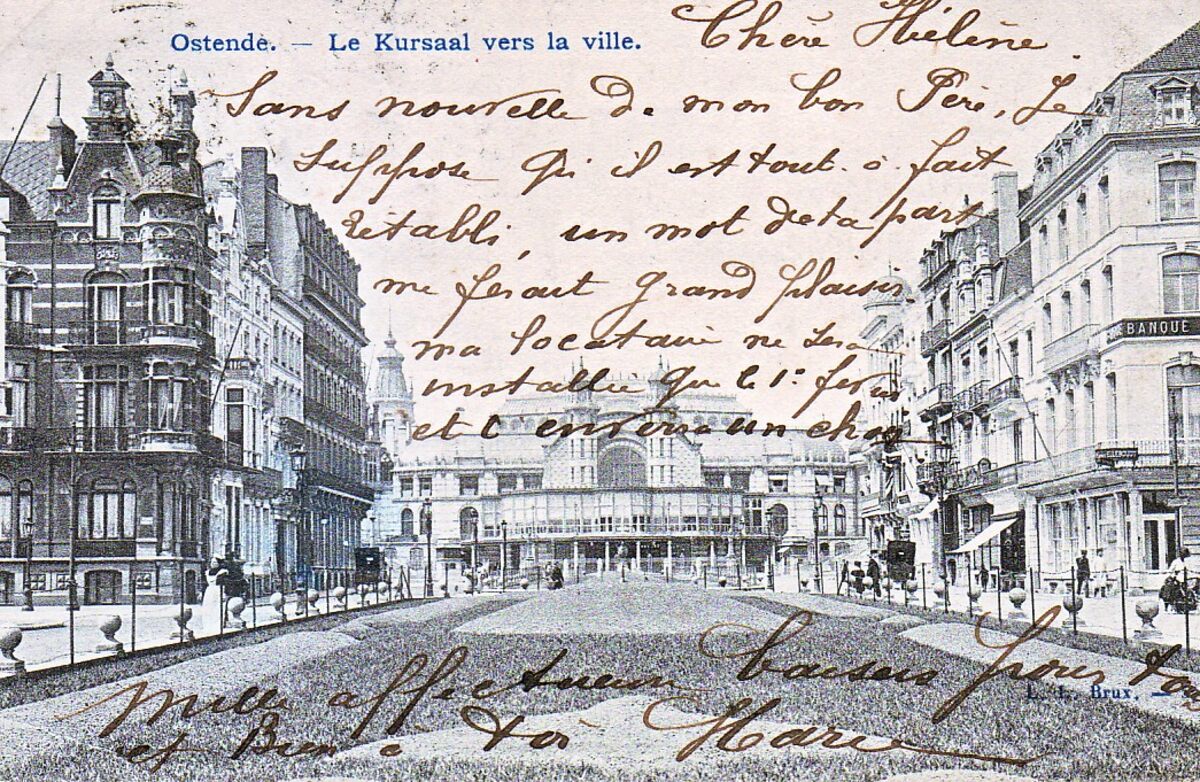 Ostende. — Le Kursaal vers la ville.
Chère Hélène
Sans nouvelle de mon bon Père, Je
suppose qu'il est tout à fait
rétabli, un mot de ta part
me ferait grand plaisir.
ma locataire ne sera
installée que le 1er
et t'enverra un
BANQUE
Mille affectueux baisers pour toi
et Bien à toi Marie
L. L. Brux. —